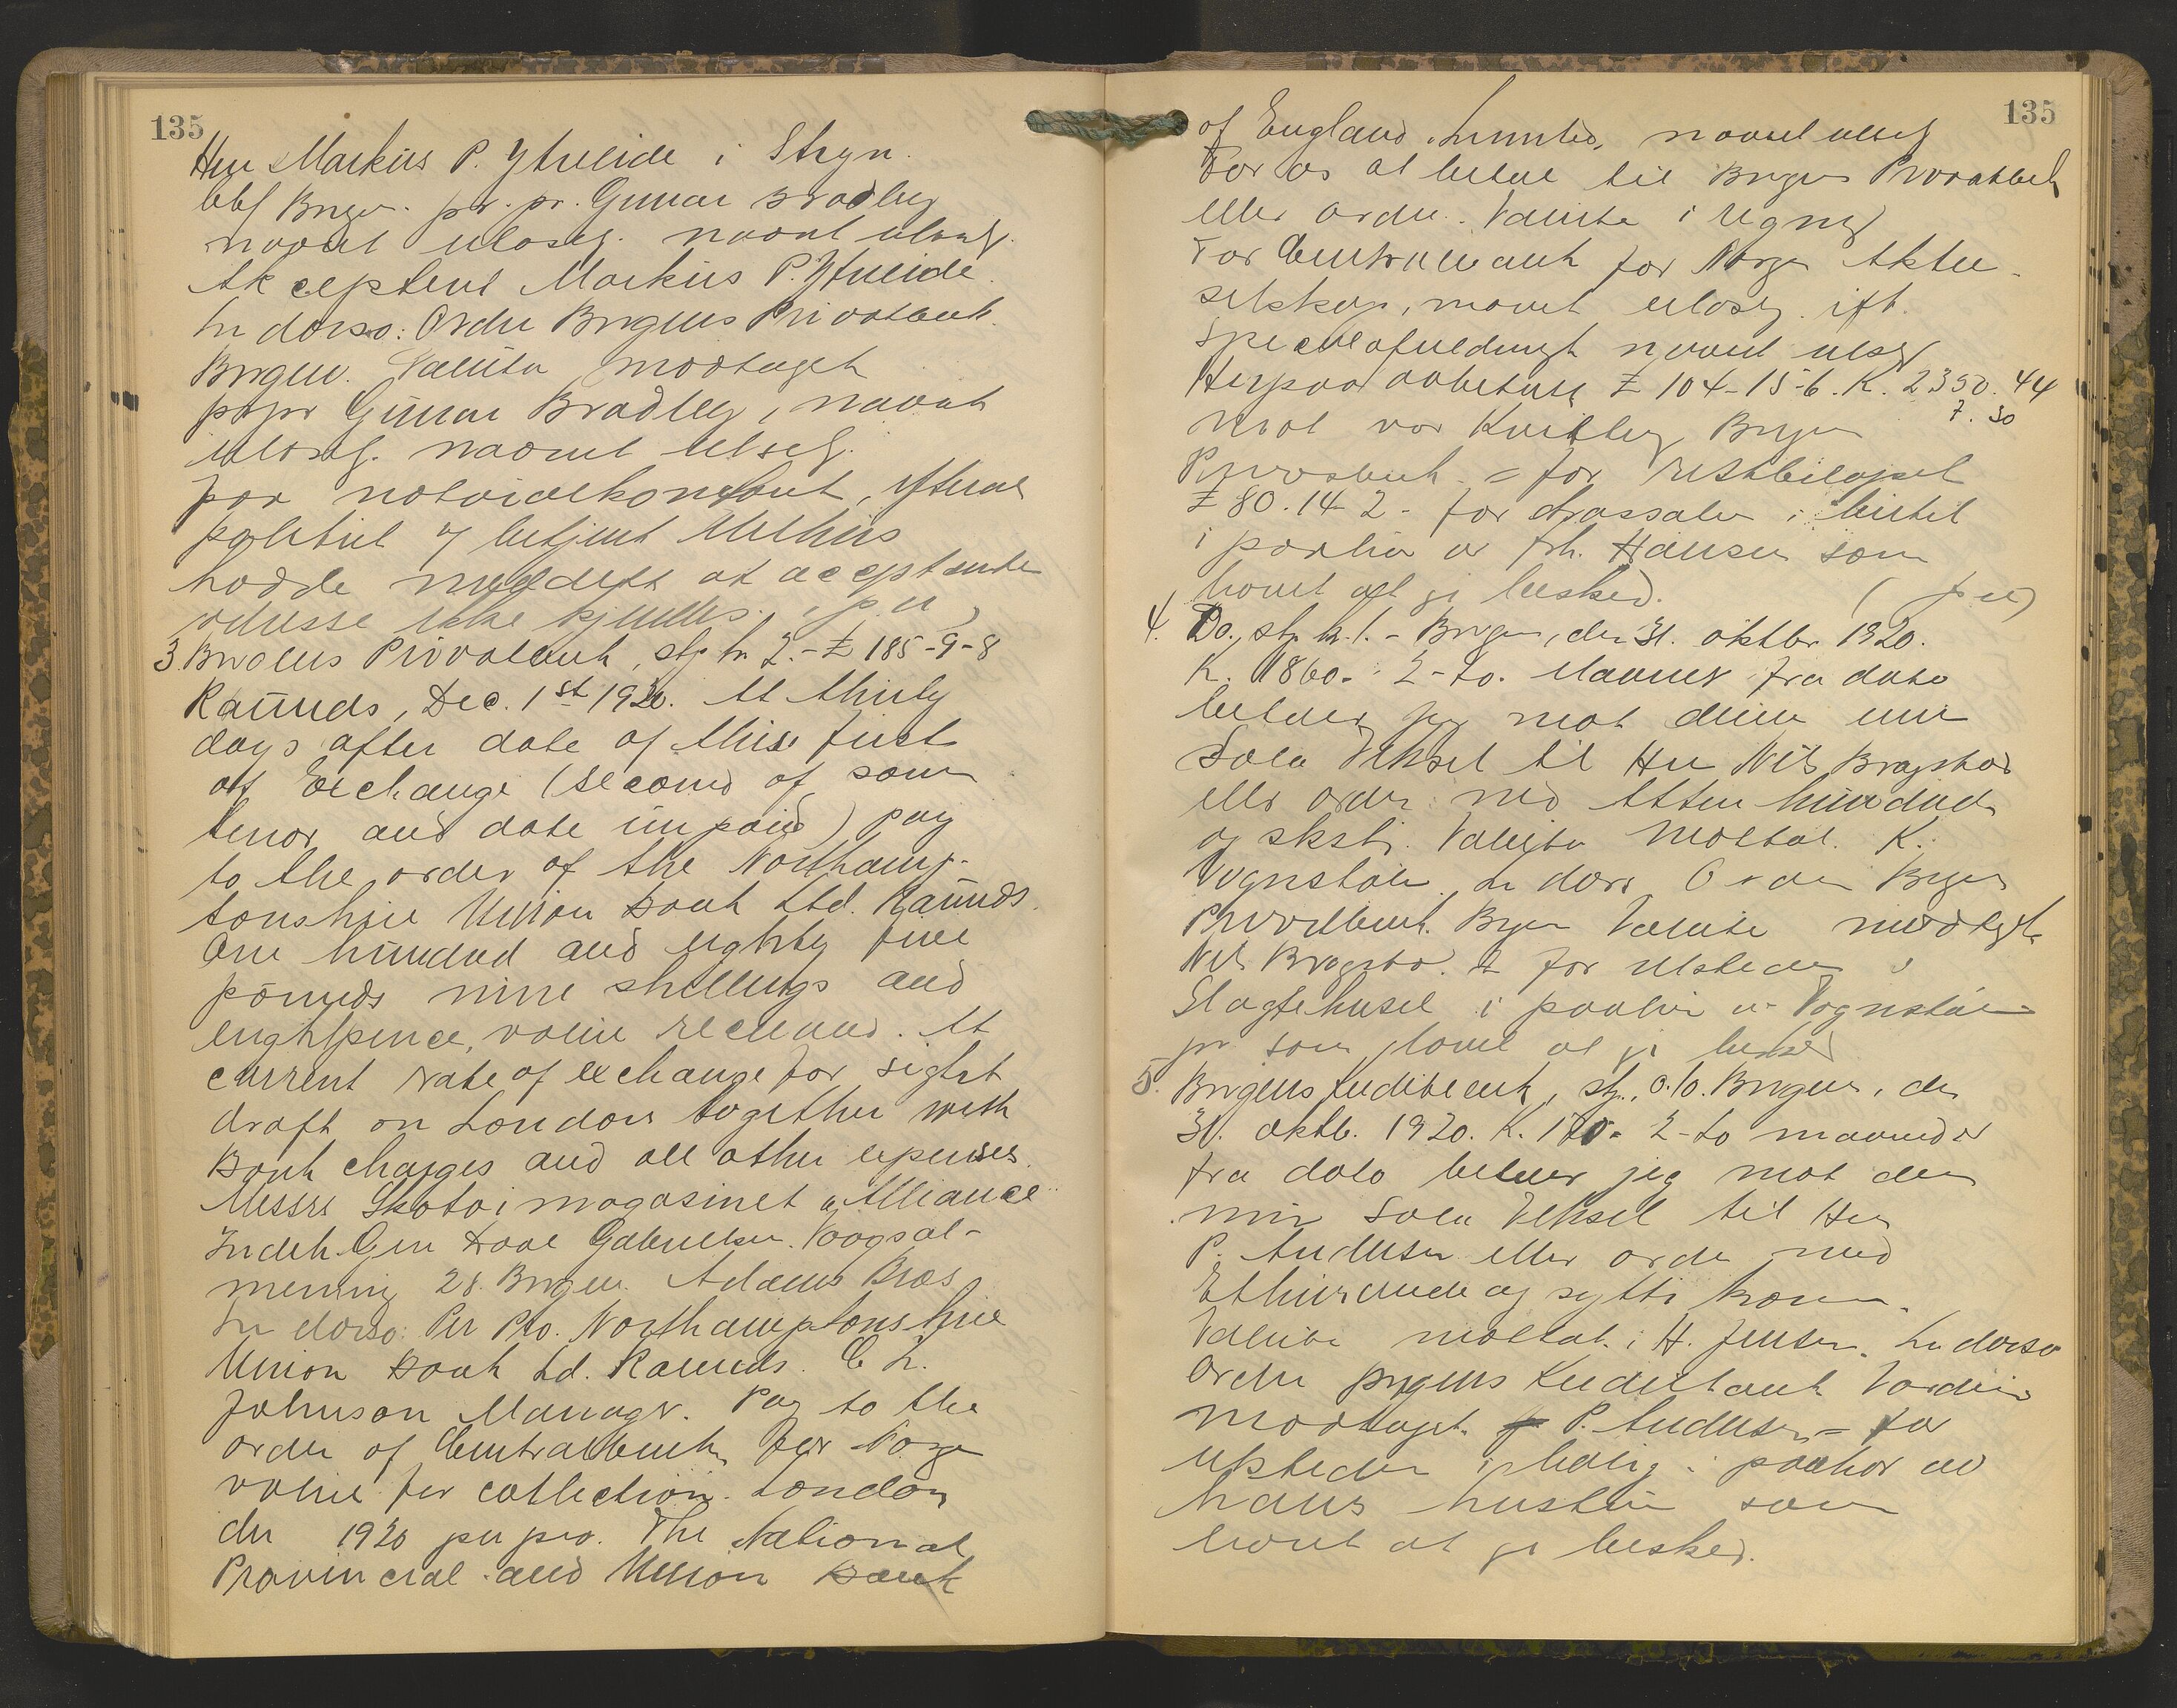 135
Hr. Markus P. Ytreeide i Stryn.
bbf Brgen. pr. pr. Gunnar Bradley
navnet ulæsel. navnet ulæsel.
Akceptert Markus P. Ytreeide.
In dorso: Ordre Bergens Privatbank.
Bergen. Valuta modtaget
pr pr Gunnar Bradley, navnet
ulæsel. navnet ulæsel.
paa notarialkontoret, ifteral
politiet v/ betjent
hadde meddelt at acceptantens
adresse ikke kjendtes. (p. u.)
3. Bergens Privatbank, stp. kr. 2.- £ 185-9-8
Raunds, Dec. 1st 1920. At thirty
days after date of this first
of Exchange (second of same
tenor and date unpaid) pay
to the order of the Northamp-
tonshire Union Bank Ltd. Raunds.
One hundred and eighty five
pounds nine shillings and
eightpence, value received. At
current rate of exchange for sight
draft on London together with
Bank charges and all other expenses.
Messrs Skotøimagasinet "Alliance"
Indeh. Gen Dave Gabrielsen. Vaagsal-
menning 28. Bergen. Adams Bros
In dorso: Per Pro. Northamptonshire
Union Bank Ld. Raunds. C. L.
Johnson Manager. Pay to the
order of Centralbanken for Norge
value for collection. London
den 1920 per pro. The National
Provincial and Union Bank
135
of England Limited, navnet ulæsel
For os at betale til Bergens Privatbank
eller ordre. Valuta i regning
For Centralbank for Norge Aktie-
selskap, navnet ulæsel. ift.
Specialafmeldingt navnet ulæsel
Herpaa avbetalt £ 104-15-6. K. 2350.44
7.30
mot vor Kvittering Bergens
Privatbank - for restbeløpet
£ 80.14-2. for trassaten i butik
i paahør av frk. Hansen som
lovet at gi besked. (p u)
4. Do., stp. kr. 1. - Bergen, den 31. oktbr 1920.
K. 1860.- 2 - to. Maaneder fra dato
betaler jeg mot denne min
Sola Veksel til Hr. Nils Bragstad
eller ordre med Atten hundrede
og seksti. Valuta Mottat. K.
Vognstølen. In dorso Ordre Bergens
Privatbank. Bergen Valuta modtaget
Nils Bragstad. for utstederen i
Slagtehuset i paahør av Vognstølen
jr. som lovet at gi besked
5. Bergens Kreditbank, stp. 0.10. Bergen, den
31. oktb. 1920. K. 170.- 2-to maaneder
fra dato betaler jeg mot den
min Sola Veksel til Hr.
P. Andersen eller ordre med
Ethundrede og sytti kroner.
Valuta mottat. i H. Jensen. In dorso
Ordre Bergens Kreditbank Værdien
modtaget. P. Andersen - for
utstederen i bolig i paahør av
hans hustru som
lovet at gi besked.